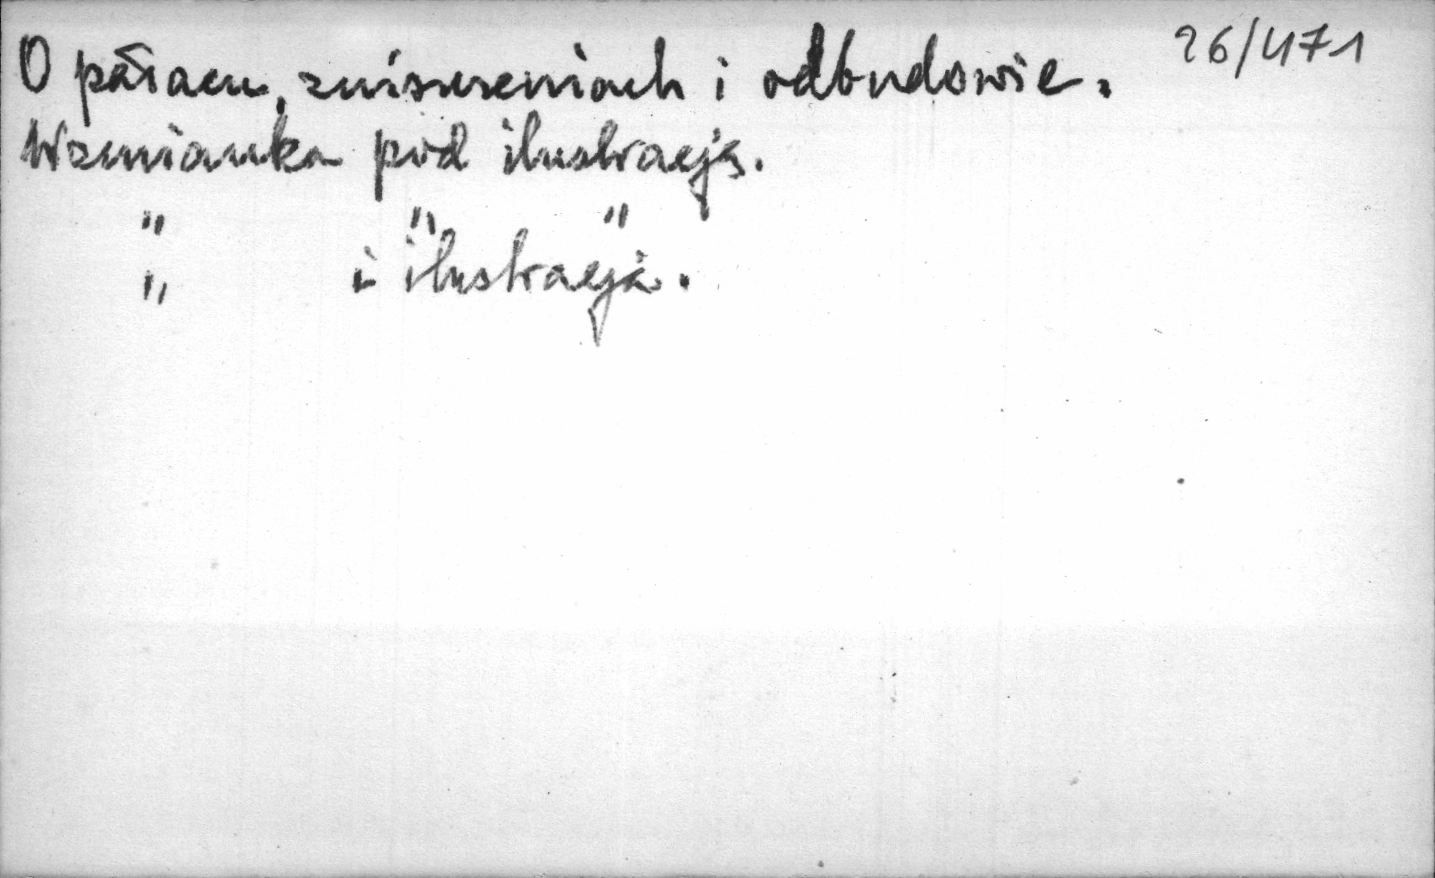 26/471
O pałacu, zniszczeniach i odbudowie.
Wzmianka pod ilustracją.
" " "
" i ilustracja.